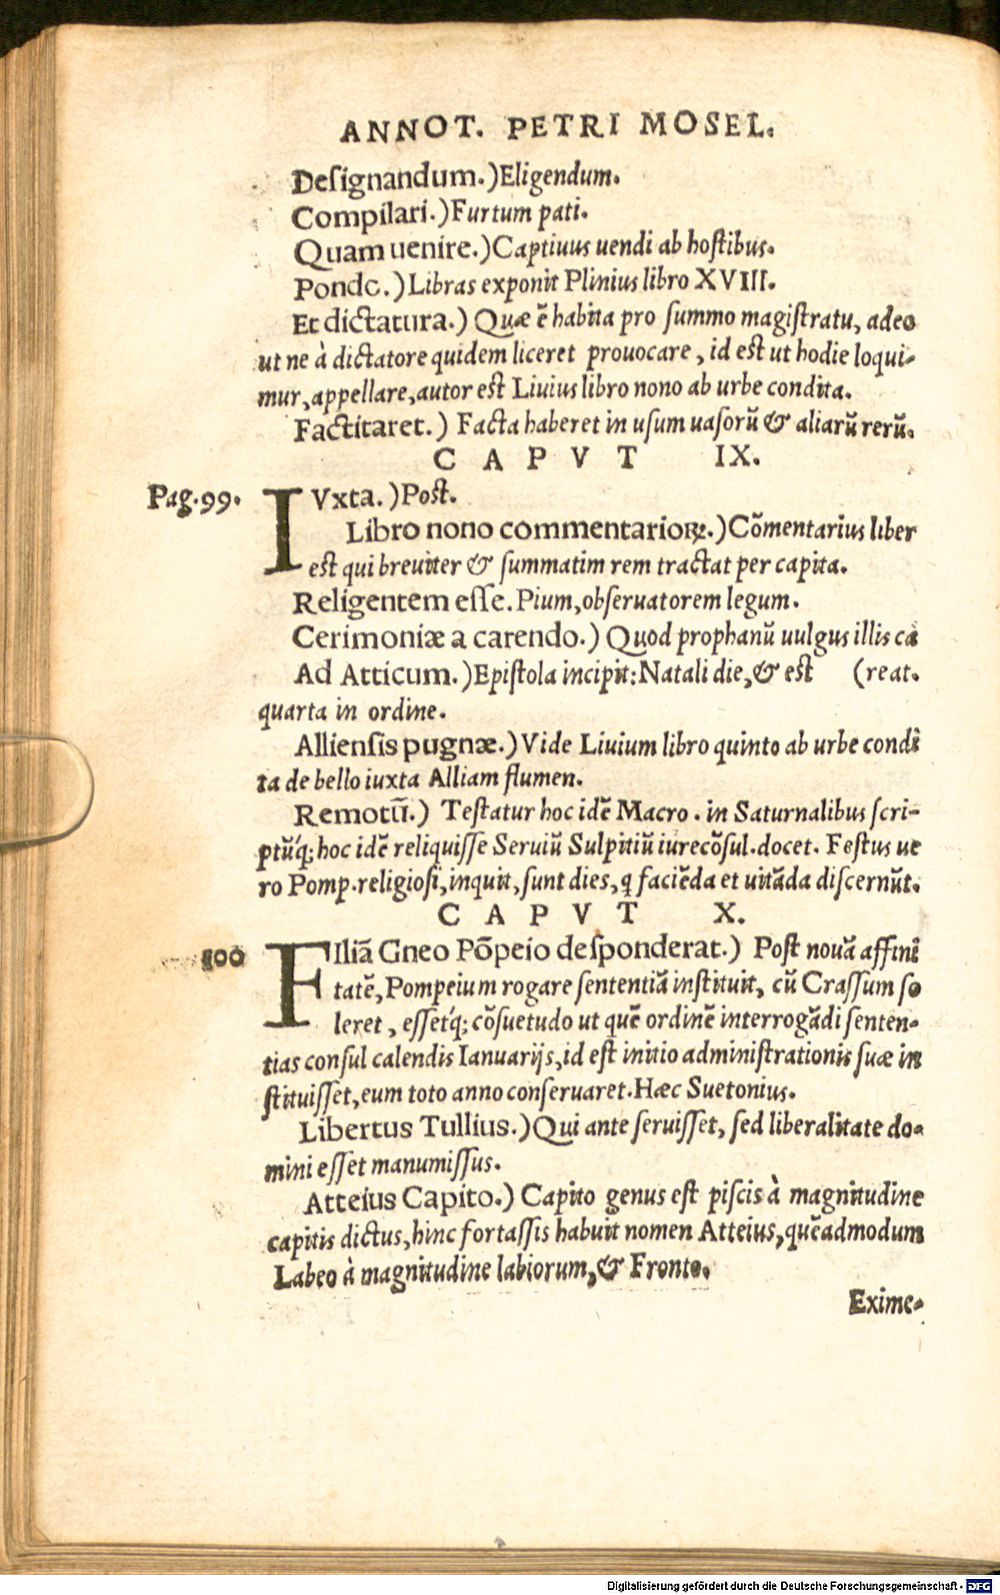 ANNOT. PETRI MOSEL.
Deſignandum.) Eligendum.
Compilari.) Furtum pati.
Quam uenire.) Captiuus uendi ab hoſtibus.
Pondo.) Libras exponit Plinius libro XVIII.
Et dictatura.) Quæ ē habita pro ſummo magiſtratu, adeo
ut ne à dictatore quidem liceret prouocare, id eſt ut hodie loqui-
mur, appellare, autor eſt Liuius libro nono ab urbe condita.
Factitaret.) Facta haberet in uſum uaſorũ & aliarũ rerũ.
CAPVT IX.
Pag. 99. IVxta.) Poſt.
Libro nono commentarioꝝ.) Cõmentarius liber
eſt qui breuiter & ſummatim rem tractat per capita.
Religentem eſſe. Pium, obſeruatorem legum.
Cerimoniæ a carendo.) Quod prophanũ uulgus illis ca
Ad Atticum.) Epiſtola incipit: Natali die, & eſt (reat.
quarta in ordine.
Allienſis pugnæ.) Vide Liuium libro quinto ab urbe condi
ta de bello iuxta Alliam flumen.
Remotũ.) Teſtatur hoc idē Macro. in Saturnalibus ſcri-
ptũq́; hoc idē reliquiſſe Seruiũ Sulpitiũ iurecõſul. docet. Feſtus ue
ro Pomp. religioſi, inquit, ſunt dies, q faciēda et uitãda diſcernũt.
CAPVT X.
100 FIliã Gneo Põpeio deſponderat.) Poſt nouã affini
tatē, Pompeium rogare ſententiã inſtituit, cũ Craſſum ſo
leret, eſſetq́; cõſuetudo ut quē ordinē interrogãdi ſenten-
tias conſul calendis Ianuarijs, id eſt initio adminiſtrationis ſuæ in
ſtituiſſet, eum toto anno conſeruaret. Hæc Suetonius.
Libertus Tullius.) Qui ante ſeruiſſet, ſed liberalitate do-
mini eſſet manumiſſus.
Atteius Capito.) Capito genus eſt piſcis à magnitudine
capitis dictus, hinc fortaſſis habuit nomen Atteius, quēadmodum
Labeo à magnitudine labiorum, & Fronto.
Exime-
Digitalisierung gefördert durch die Deutsche Forschungsgemeinschaft - DFG